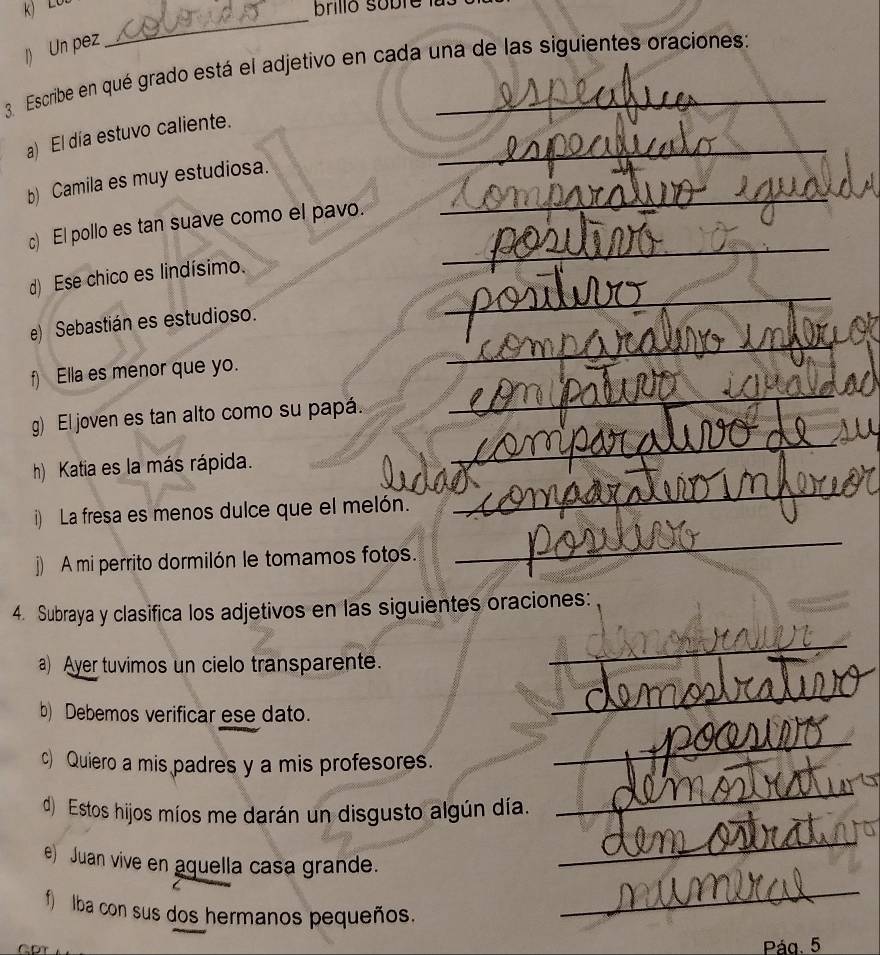 k)
brillo sobre
l) Un pez colorido
3. Escribe en qué grado está el adjetivo en cada una de las siguientes oraciones:
a) El día estuvo caliente.
b) Camila es muy estudiosa.
c) El pollo es tan suave como el pavo. comparativo eguald
d) Ese chico es lindísimo. positivo
e) Sebastián es estudioso. positivo
f) Ella es menor que yo. comparativo inferior
g) El joven es tan alto como su papá. compativo igualdad
h) Katia es la más rápida. comparativo de su
i) La fresa es menos dulce que el melón. comparativo inferior
j) A mi perrito dormilón le tomamos fotos. positivo
4. Subraya y clasifica los adjetivos en las siguientes oraciones:
a) Ayer tuvimos un cielo transparente.
b) Debemos verificar ese dato. demostrativo
c) Quiero a mis padres y a mis profesores.
d) Estos hijos míos me darán un disgusto algún día. demostrativo
e) Juan vive en aquella casa grande. demostrativo
f) Iba con sus dos hermanos pequeños. numeral
Pág. 5